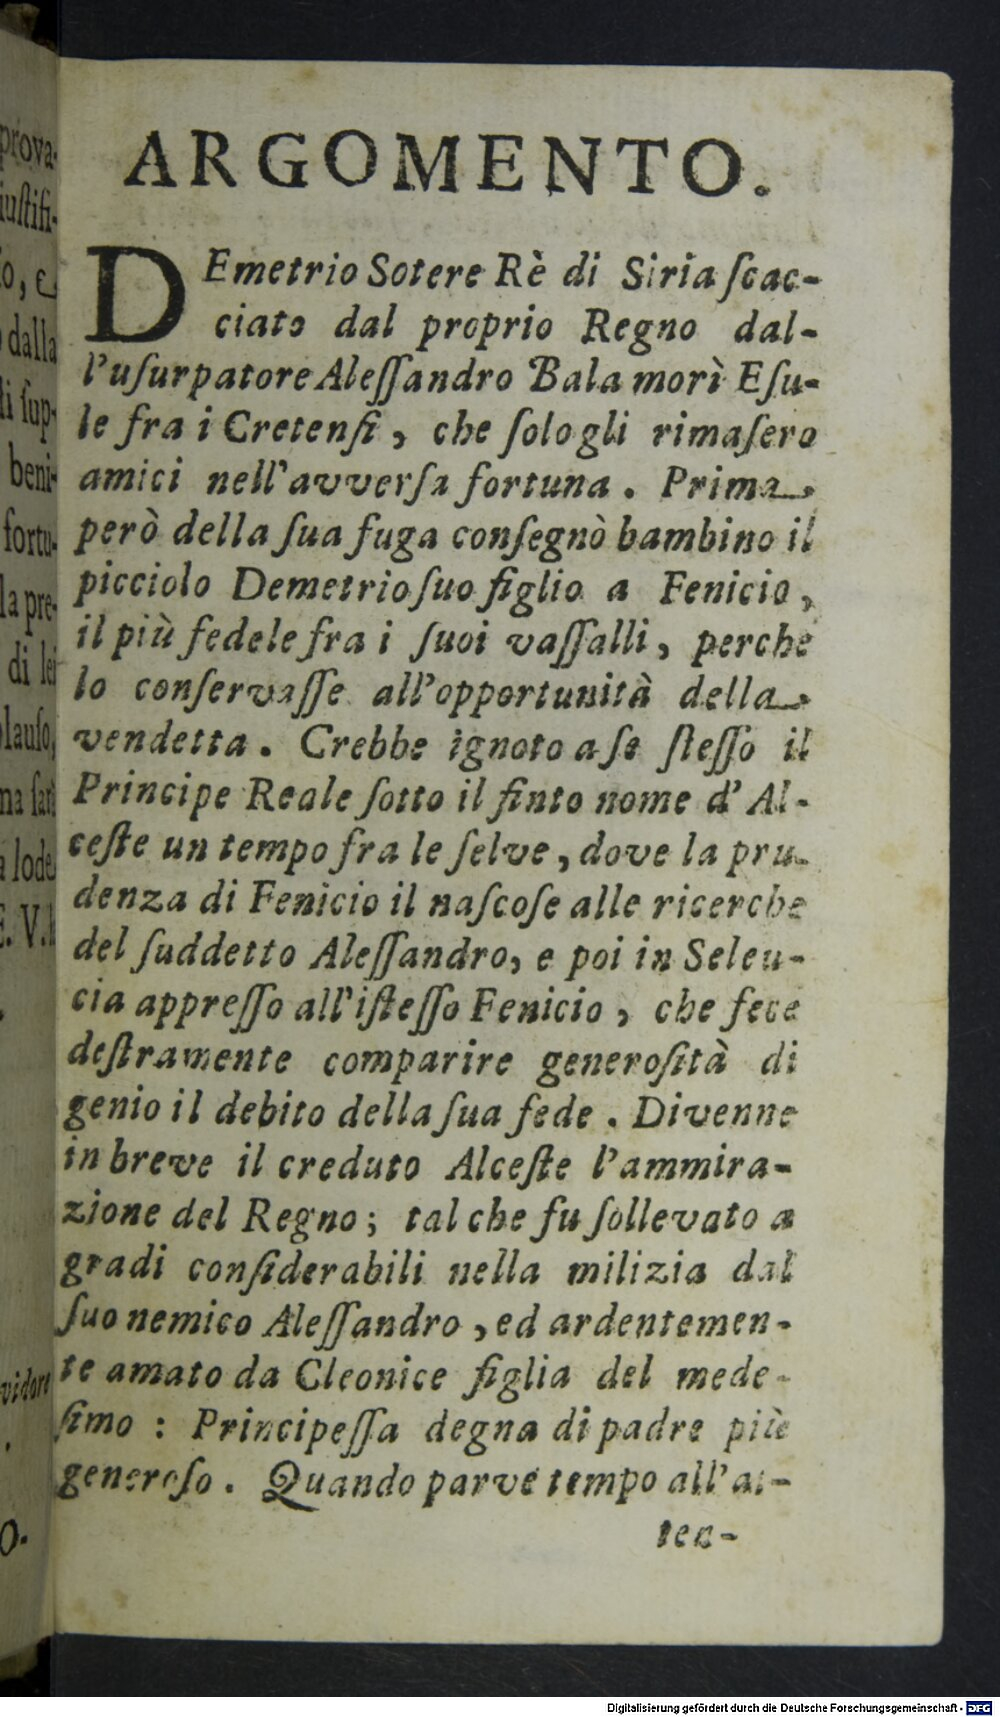 ARGOMENTO.
DEmetrio Sotere Rè di Siria ſcac-
ciato dal proprio Regno dal-
l'uſurpatore Aleſſandro Bala morì Eſu-
le fra i Cretenſi, che ſolo gli rimaſero
amici nell'avverſa fortuna. Prima
però della ſua fuga conſegnò bambino il
picciolo Demetrio ſuo figlio a Fenicio,
il più fedele fra i ſuoi vaſſalli, perche
lo conſervaſſe all'opportunità della
vendetta. Crebbe ignoto a ſe ſteſſo il
Principe Reale ſotto il finto nome d'Al-
ceſte un tempo fra le ſelve, dove la pru-
denza di Fenicio il naſcoſe alle ricerche
del ſuddetto Aleſſandro, e poi in Seleu-
cia appreſſo all'iſteſſo Fenicio, che fece
deſtramente comparire generoſità di
genio il debito della ſua fede. Divenne
in breve il creduto Alceſte l'ammira-
zione del Regno; tal che fu ſollevato a
gradi conſiderabili nella milizia dal
ſuo nemico Aleſſandro, ed ardentemen-
te amato da Cleonice figlia del mede-
ſimo: Principeſſa degna di padre più
generoſo. Quando parve tempo all'at-
ten-
prova-
iuſtifi-
o, e
dalla
li ſup-
beni-
fortu-
la pre-
di lei
lauſo,
na ſarà
lode
E. V.
vidore
O.
Digitalisierung gefördert durch die Deutsche Forschungsgemeinschaft - DFG